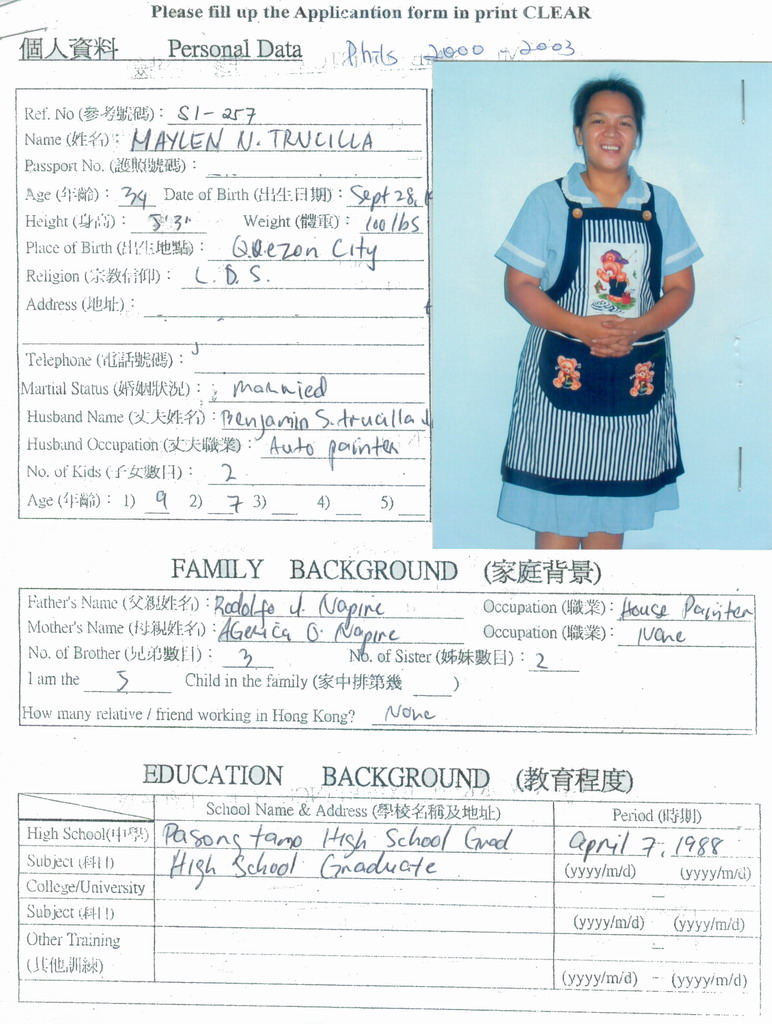 Please fill up the Applicantion form in print CLEAR
個人資料 Personal Data Phils 2000 - 2003
Ref. No (參考號碼) : SI-257
Name (姓名) : MAYLEN N. TRUCILLA
Passport No. (護照號碼) :
Age (年齡) : 34 Date of Birth (出生日期) : Sept 28, 
Height (身高) : 5'3" Weight (體重) : 100 lbs
Place of Birth (出生地點) : Quezon City
Religion (宗教信仰) : L.D.S.
Address (地址) :
Telephone (電話號碼) :
Martial Status (婚姻狀況) : married
Husband Name (丈夫姓名) : Benjamin S. trucilla
Husband Occupation (丈夫職業) : Auto painter
No. of Kids (子女數目) : 2
Age (年齡) : 1) 9 2) 7 3) 4) 5)
FAMILY BACKGROUND (家庭背景)
Father's Name (父親姓名) : Rodolfo J. Napire Occupation (職業) : House Painter
Mother's Name (母親姓名) : O. Napire Occupation (職業) : None
No. of Brother (兄弟數目) : 3 No. of Sister (姊妹數目) : 2
I am the 5 Child in the family (家中排第幾 )
How many relative / friend working in Hong Kong? None
EDUCATION BACKGROUND (教育程度)
School Name & Address (學校名稱及地址) Period (時期)
High School(中學) Pasong tamo High School Grad April 7, 1988
Subject (科目) High School Graduate (yyyy/m/d) (yyyy/m/d)
College/University –
Subject (科目) (yyyy/m/d) (yyyy/m/d)
Other Training –
(其他訓練) (yyyy/m/d) – (yyyy/m/d)